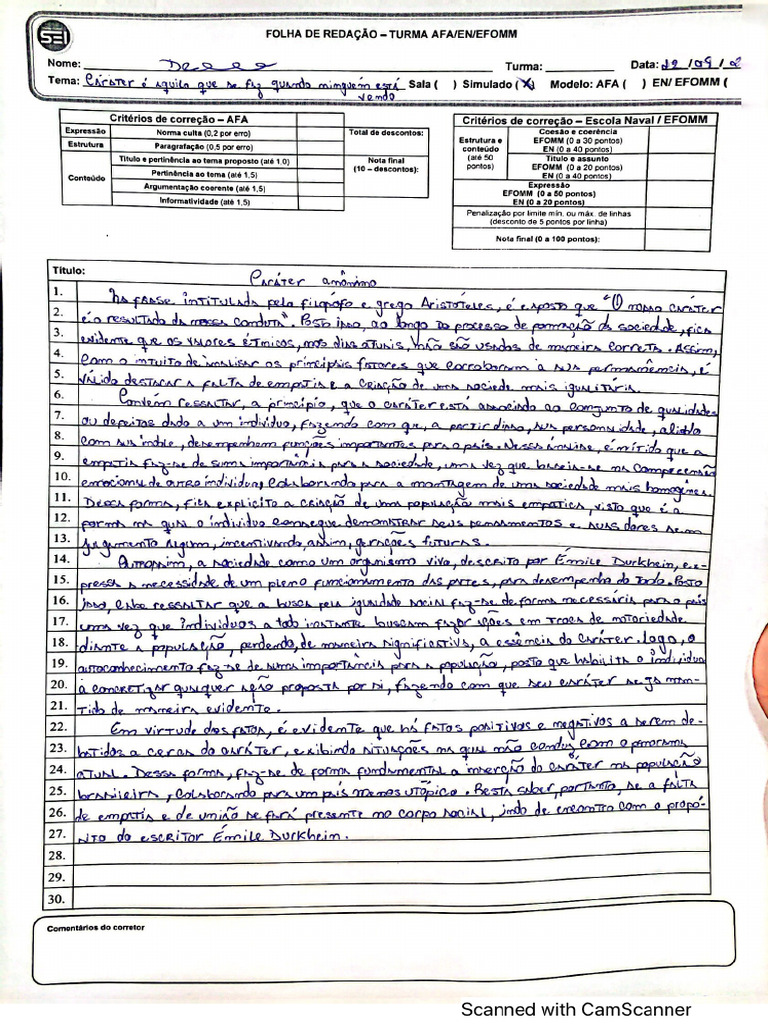 SEI
FOLHA DE REDAÇÃO – TURMA AFA/EN/EFOMM
Nome: Turma: Data: 22/09/2
Tema: Caráter é aquilo que se faz quando ninguém está vendo Sala ( ) Simulado (X) Modelo: AFA ( ) EN/ EFOMM (
Critérios de correção – AFA
Expressão Norma culta (0,2 por erro)
Estrutura Paragrafação (0,5 por erro)
Conteúdo
Título e pertinência ao tema proposto (até 1,0)
Pertinência ao tema (até 1,5)
Argumentação coerente (até 1,5)
Informatividade (até 1,5)
Total de descontos:
Nota final
(10 – descontos):
Critérios de correção – Escola Naval / EFOMM
Estrutura e conteúdo (até 50 pontos)
Coesão e coerência
EFOMM (0 a 30 pontos)
EN (0 a 40 pontos)
Título e assunto
EFOMM (0 a 20 pontos)
EN (0 a 40 pontos)
Expressão
EFOMM (0 a 50 pontos)
EN (0 a 20 pontos)
Penalização por limite mín. ou máx. de linhas
(desconto de 5 pontos por linha)
Nota final (0 a 100 pontos):
Título: Caráter anônimo
1. Na frase intitulada pela filósofo e grego Aristóteles, é exposto que "O nosso caráter
2. é o resultado da nossa conduta". Posto isso, ao longo do processo de formação da sociedade, fica
3. evidente que os valores étnicos, nos dias atuais, não são usados de maneira correta. Assim,
4. com o intuito de analisar os principais fatores que corroboram a sua permanência, é
5. válido destacar a falta de empatia e a criação de uma sociede mais igualitária.
6. Convém ressaltar, a princípio, que o caráter está associado ao conjunto de qualidades
7. ou depeitos dado a um indivíduo, fazendo com que, a partir disso, sua personalidade, aliado
8. com sua índole, desempenham funções importantes para o país. Nessa análise, é nítido que a
9. empatia faz-se de suma importância para a sociedade, uma vez que baseia-se na compreensão
10. emocional de outro indivíduo, colaborando para a montagem de uma sociedade mais homogênea.
11. Dessa forma, fica explícito a criação de uma população mais empática, visto que é a
12. forma na qual o indivíduo consegue demonstrar seus pensamentos e suas dores sem
13. julgamento algum, incentivando, assim, gerações futuras.
14. Outrossim, a sociedade como um organismo vivo, descrito por Émile Durkhein, ex-
15. pressa a necessidade de um pleno funcionamento das partes, para desempenho do todo. Posto
16. isso, cabe ressaltar que a busca pela igualdade social faz-se de forma necessária para o país
17. uma vez que indivíduos a todo instante buscam fazer ações em troca de notoriedade
18. diante a população, perdendo, de maneira significativa, a essência do caráter. Logo, o
19. autoconhecimento faz-se de suma importância para a população, posto que habilita o indivíduo
20. a concretizar qualquer ação proposta por si, fazendo com que seu caráter seja man-
21. tido de maneira evidente.
22. Em virtude dos fatos, é evidente que há fatos positivos e negativos a serem de-
23. batidos a cerca do caráter, exibindo situações na qual não conduz com o panorama
24. atual. Dessa forma, faz-se de forma fundamental a inserção do caráter na população
25. brasileira, colaborando para um país menos utópico. Resta saber, portanto, se a falta
26. de empatia e de união se fará presente no corpo social, indo de encontro com o propó-
27. sito do escritor Émile Durkhein.
28.
29.
30.
Comentários do corretor
Scanned with CamScanner